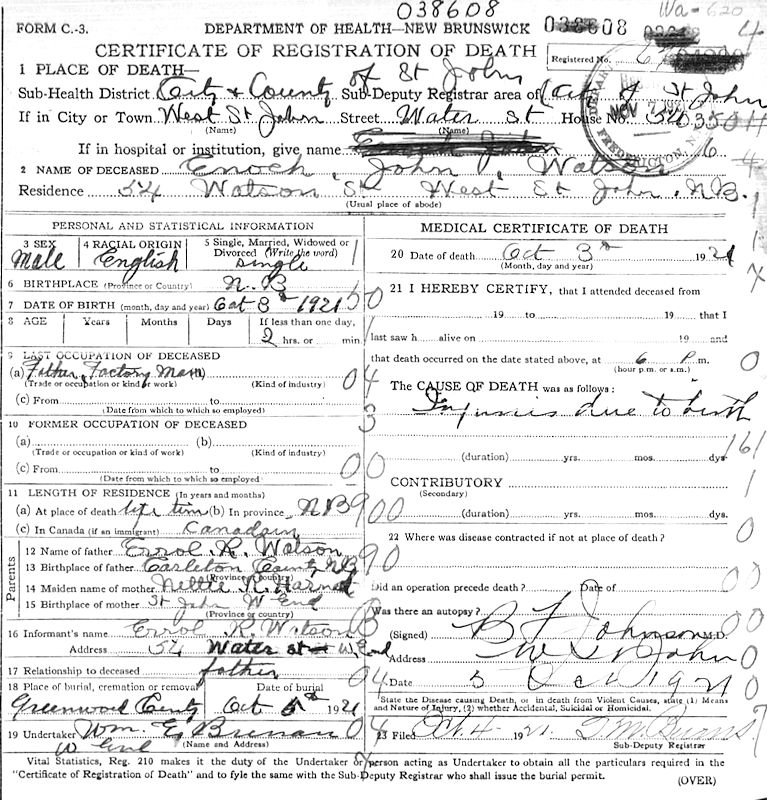 038608
Wa - 620
FORM C.-3. DEPARTMENT OF HEALTH—NEW BRUNSWICK 038608 4
CERTIFICATE OF REGISTRATION OF DEATH Registered No.
1 PLACE OF DEATH—
Sub-Health District City & County of St John Sub-Deputy Registrar area of City of St John
If in City or Town West St John Street Water St House No. 54
(Name) (Name)
If in hospital or institution, give name
2 NAME OF DECEASED Enoch John Watson
Residence 54 Watson St West St John N.B.
(Usual place of abode)
NOV 7 1921
FREDERICTON, N.B.
PERSONAL AND STATISTICAL INFORMATION
3 SEX 4 RACIAL ORIGIN 5 Single, Married, Widowed or Divorced (Write the word)
Male English Single
6 BIRTHPLACE (Province or Country) N.B
7 DATE OF BIRTH (month, day and year) Oct 3rd 1921
8 AGE Years Months Days If less than one day,
2 hrs. or min.
9 LAST OCCUPATION OF DECEASED
(a) Father Factory Man
(Trade or occupation or kind of work) (Kind of industry)
(c) From to
(Date from which to which so employed)
10 FORMER OCCUPATION OF DECEASED
(a) (b)
(Trade or occupation or kind of work) (Kind of industry)
(c) From to
(Date from which to which so employed)
11 LENGTH OF RESIDENCE (In years and months)
(a) At place of death life time (b) In province N B
(c) In Canada (if an immigrant) Canadain
Parents
12 Name of father Errol R. Watson
13 Birthplace of father Carleton County NB
(Province or country)
14 Maiden name of mother Nettie R.
15 Birthplace of mother St John W End
(Province or country)
16 Informant's name Errol R. Watson
Address 54 Water st W. End
17 Relationship to deceased father
18 Place of burial, cremation or removal Date of burial
Greenwood Oct 5th 1921
19 Undertaker Wm E. Brenan
W End (Name and Address)
MEDICAL CERTIFICATE OF DEATH
20 Date of death Oct 3rd 1921
(Month, day and year)
21 I HEREBY CERTIFY, that I attended deceased from
19 to 19 that I
last saw h alive on 19 and
that death occurred on the date stated above, at 6 P. m.
(hour p.m. or a.m.)
The CAUSE OF DEATH was as follows:
Injuries due to birth
(duration) yrs. mos. dys.
CONTRIBUTORY
(Secondary)
(duration) yrs. mos. dys.
22 Where was disease contracted if not at place of death?
Did an operation precede death? Date of
Was there an autopsy?
(Signed) B F Johnson M.D.
Address W St John
Date 3 Oct 1921
State the Disease causing Death, or in death from Violent Causes, state (1) Means and Nature of Injury, (2) whether Accidental, Suicidal or Homicidal.
23 Filed Oct. 4 1921
Sub-Deputy Registrar
Vital Statistics, Reg. 210 makes it the duty of the Undertaker or person acting as Undertaker to obtain all the particulars required in the
"Certificate of Registration of Death" and to fyle the same with the Sub-Deputy Registrar who shall issue the burial permit.
(OVER)